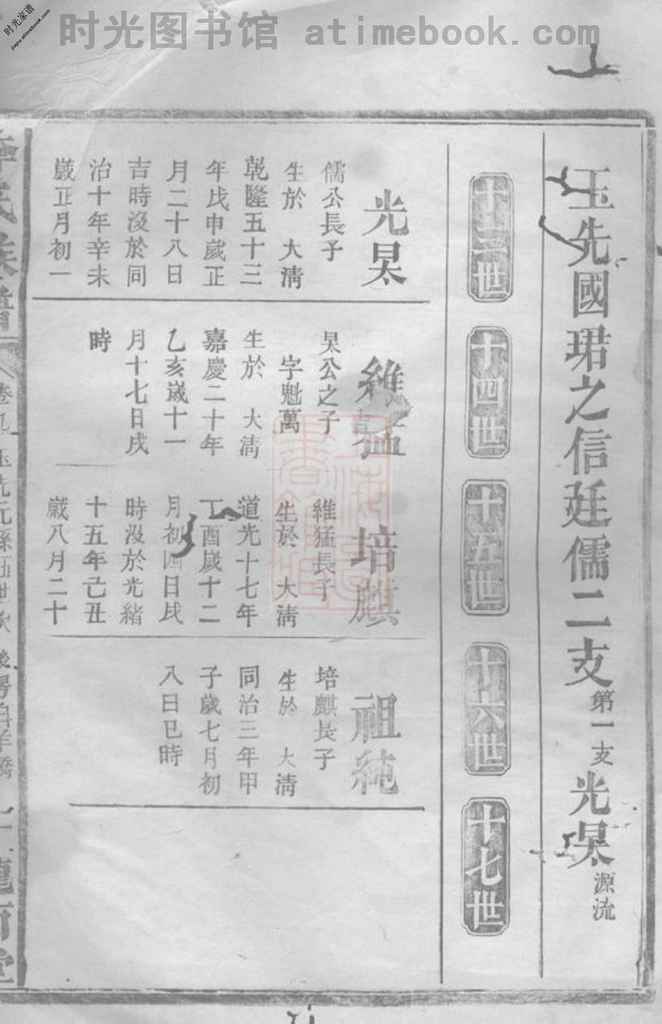 时光图书馆 atimebook.com
时光家谱
玉先國珺之信廷儒二支第一支光杲源流
十三世
十四世
十五世
十六世
十七世
光杲
儒公長子
生於 大清
乾隆五十三
年戊申歲正
月二十八日
吉時沒於同
治十年辛未
歲正月初一
維猛
杲公之子
字魁萬
生於 大清
嘉慶二十年
乙亥歲十一
月十七日戌
時
培麒
維猛長子
生於 大清
道光十七年
丁酉歲十二
月初四日戌
時沒於光緒
十五年己丑
歲八月二十
祖純
培麒長子
生於 大清
同治三年甲
子歲七月初
八日巳時
氏族譜
卷九